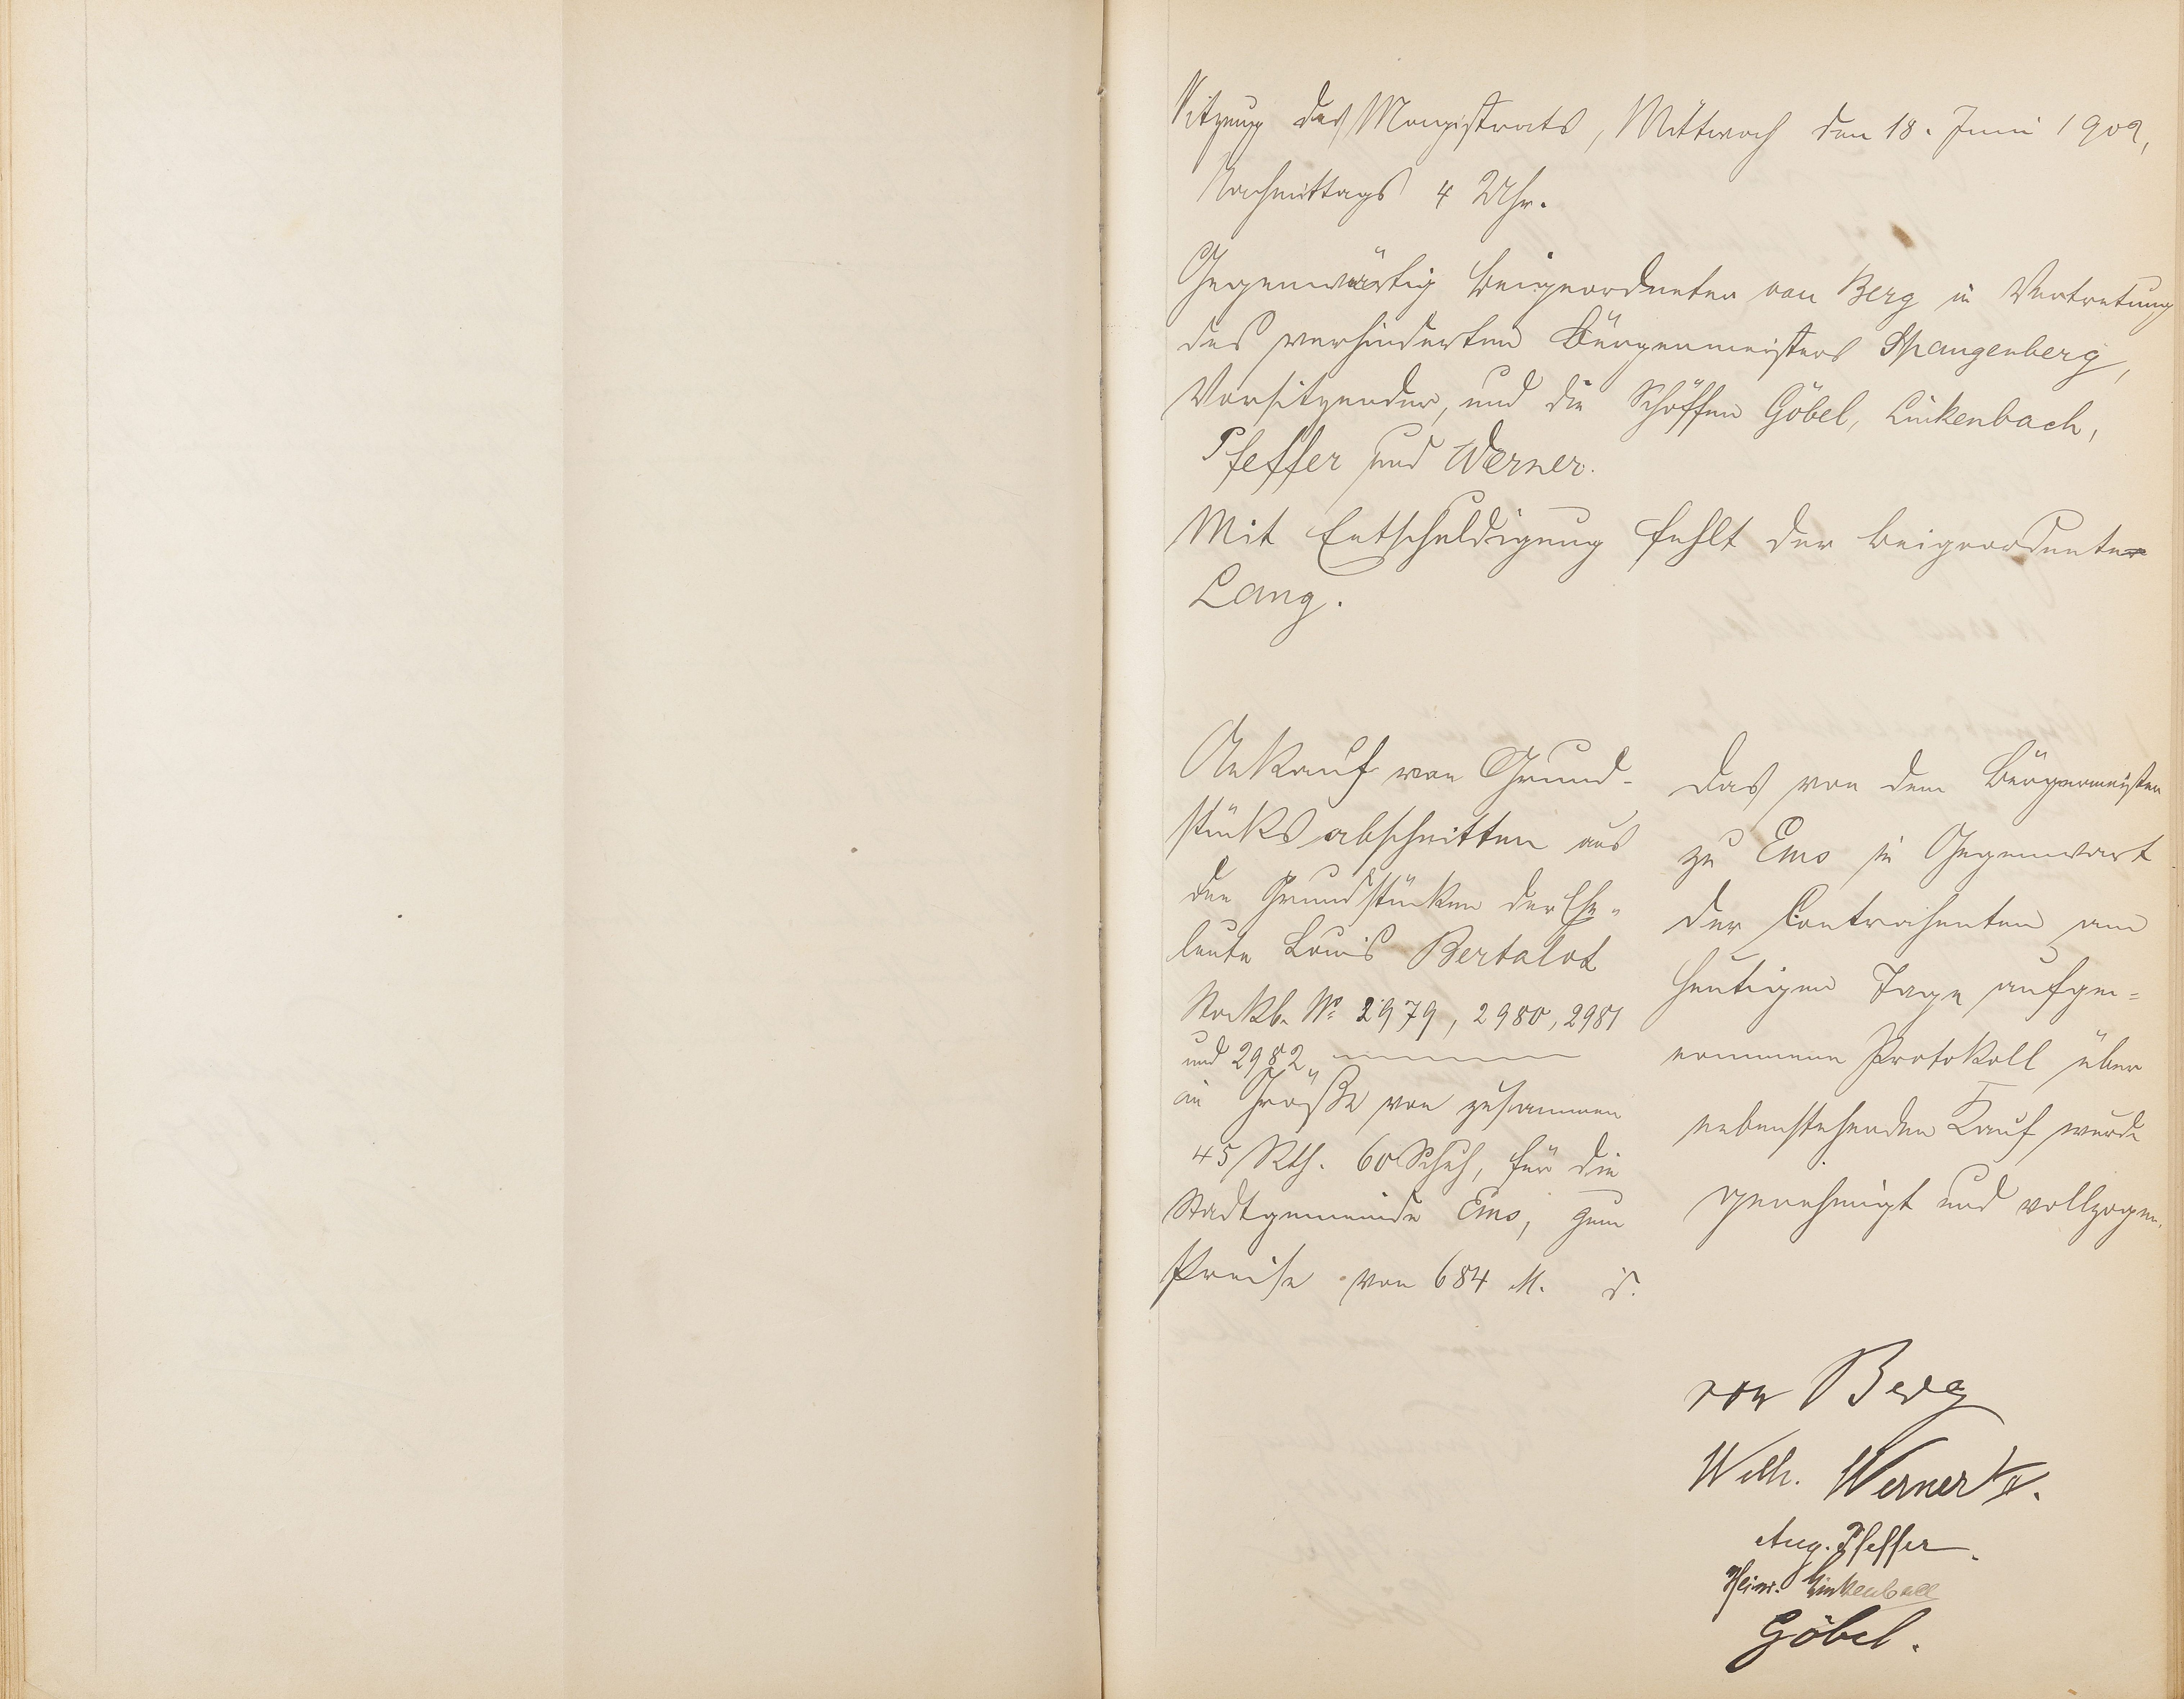 Sitzung des Magistrats, Mittwoch den 18. Juni 1902,
Nachmittags 4 Uhr.
Gegenwärtig Beigeordneter von Berg in Vertretung
des verhinderten Bürgermeisters Spangenberg,
Vorsitzender, und die Schöffen Göbel, Linkenbach,
Pfeffer und Werner.
Mit Entschuldigung fehlt der Beigeordnete
Lang.
Ankauf von Grund-
stücksabschnitten aus
den Grundstücken der Ehe-
leute Louis Bertalot
Stockb. No 2979, 2980, 2981
und 2982
in Größe von zusammen
45 Rth. 60 Schuh, für die
Stadtgemeinde Ems, zum
Preise von 684 M.
Das von dem Bürgermeister
zu Ems in Gegenwart
der Contrahenten am
heutigen Tage aufge=
nommene Protokoll über
nebenstehenden Kauf wurde
genehmigt und vollzogen.
von Berg
Wilh. Werner
Aug. Pfeffer.
Heinr. Linkenbach
Göbel.